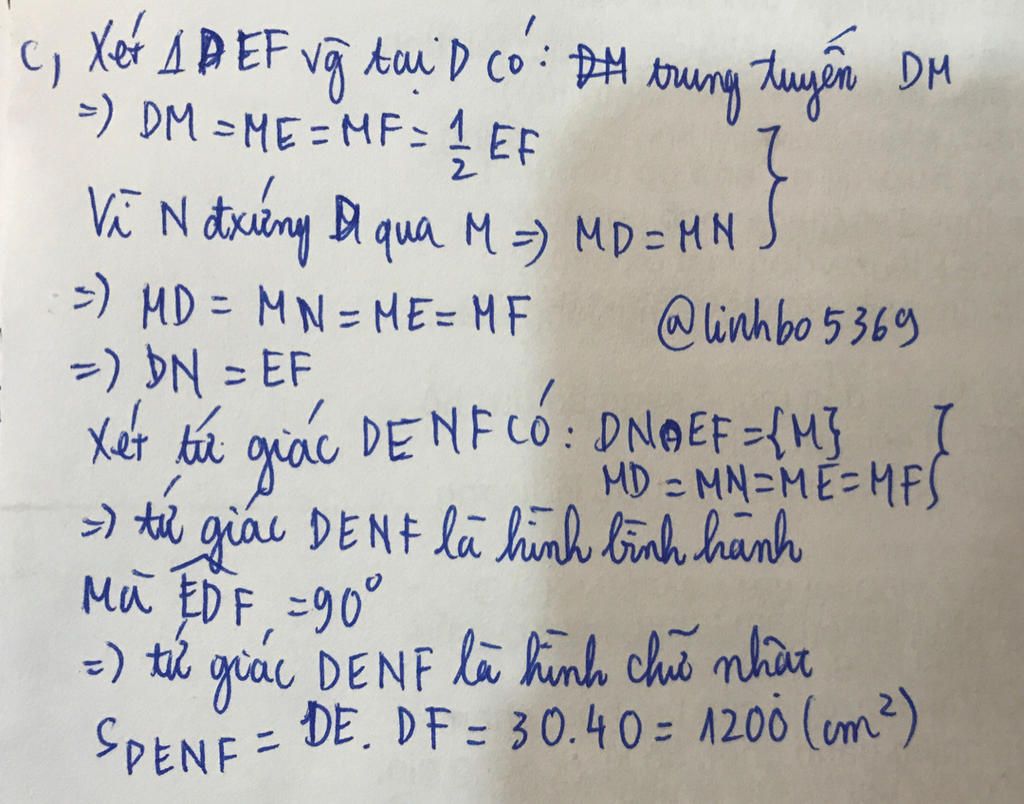 c, Xét Δ DEF vg tại D có: DM trung tuyến DM
=) DM = ME = MF = 1/2 EF
Vì N đxứng D qua M => MD = MN }
=) MD = MN = ME = MF
@linhbo5369
=) DN = EF
Xét tứ giác DENF CÓ: DN∩EF = {M}
MD = MN = ME = MF }
=) tứ giác DENF là hình bình hành
Mà EDF = 90°
=) tứ giác DENF là hình chữ nhật
S DENF = DE. DF = 30.40 = 1200 (cm²)